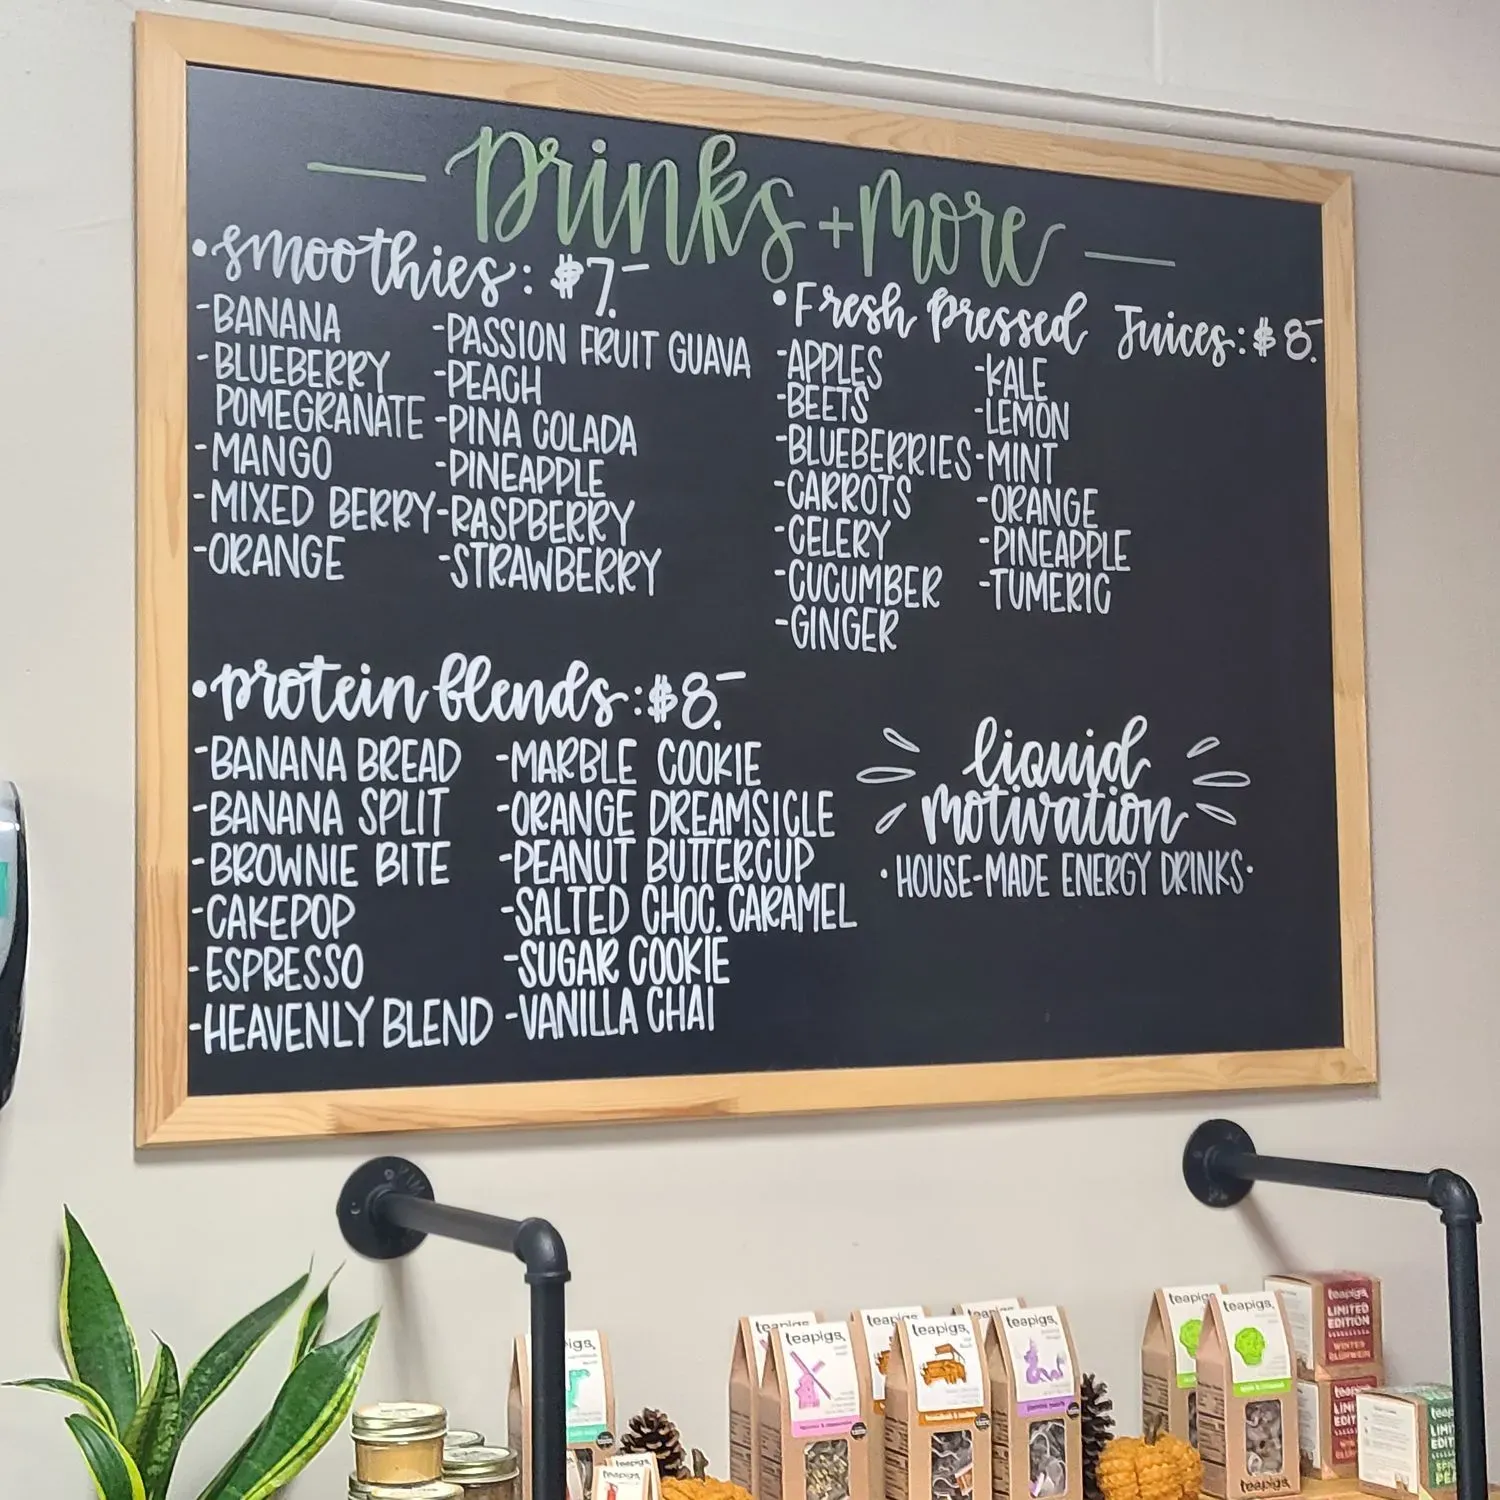 Drinks + more
• smoothies: $7.-
-BANANA
-BLUEBERRY
POMEGRANATE
-MANGO
-MIXED BERRY
-ORANGE
-PASSION FRUIT GUAVA
-PEACH
-PINA COLADA
-PINEAPPLE
-RASPBERRY
-STRAWBERRY
• Fresh Pressed Juices: $8.-
-APPLES
-BEETS
-BLUEBERRIES
-CARROTS
-CELERY
-CUCUMBER
-GINGER
-KALE
-LEMON
-MINT
-ORANGE
-PINEAPPLE
-TUMERIC
• protein blends: $8.-
-BANANA BREAD
-BANANA SPLIT
-BROWNIE BITE
-CAKEPOP
-ESPRESSO
-HEAVENLY BLEND
-MARBLE COOKIE
-ORANGE DREAMSICLE
-PEANUT BUTTERCUP
-SALTED CHOC. CARAMEL
-SUGAR COOKIE
-VANILLA CHAI
liquid
motivation
• HOUSE-MADE ENERGY DRINKS •
teapigs.
teapigs.
teapigs.
teapigs.
teapigs.
teapigs.
teapigs.
teapigs.
LIMITED
EDITION
WINTER
teapigs.
teapigs.